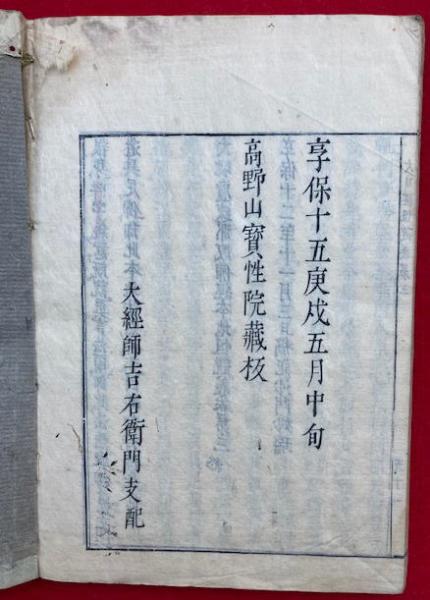 享保十五庚戌五月中旬
高野山寳性院藏板
大經師吉右衛門支配